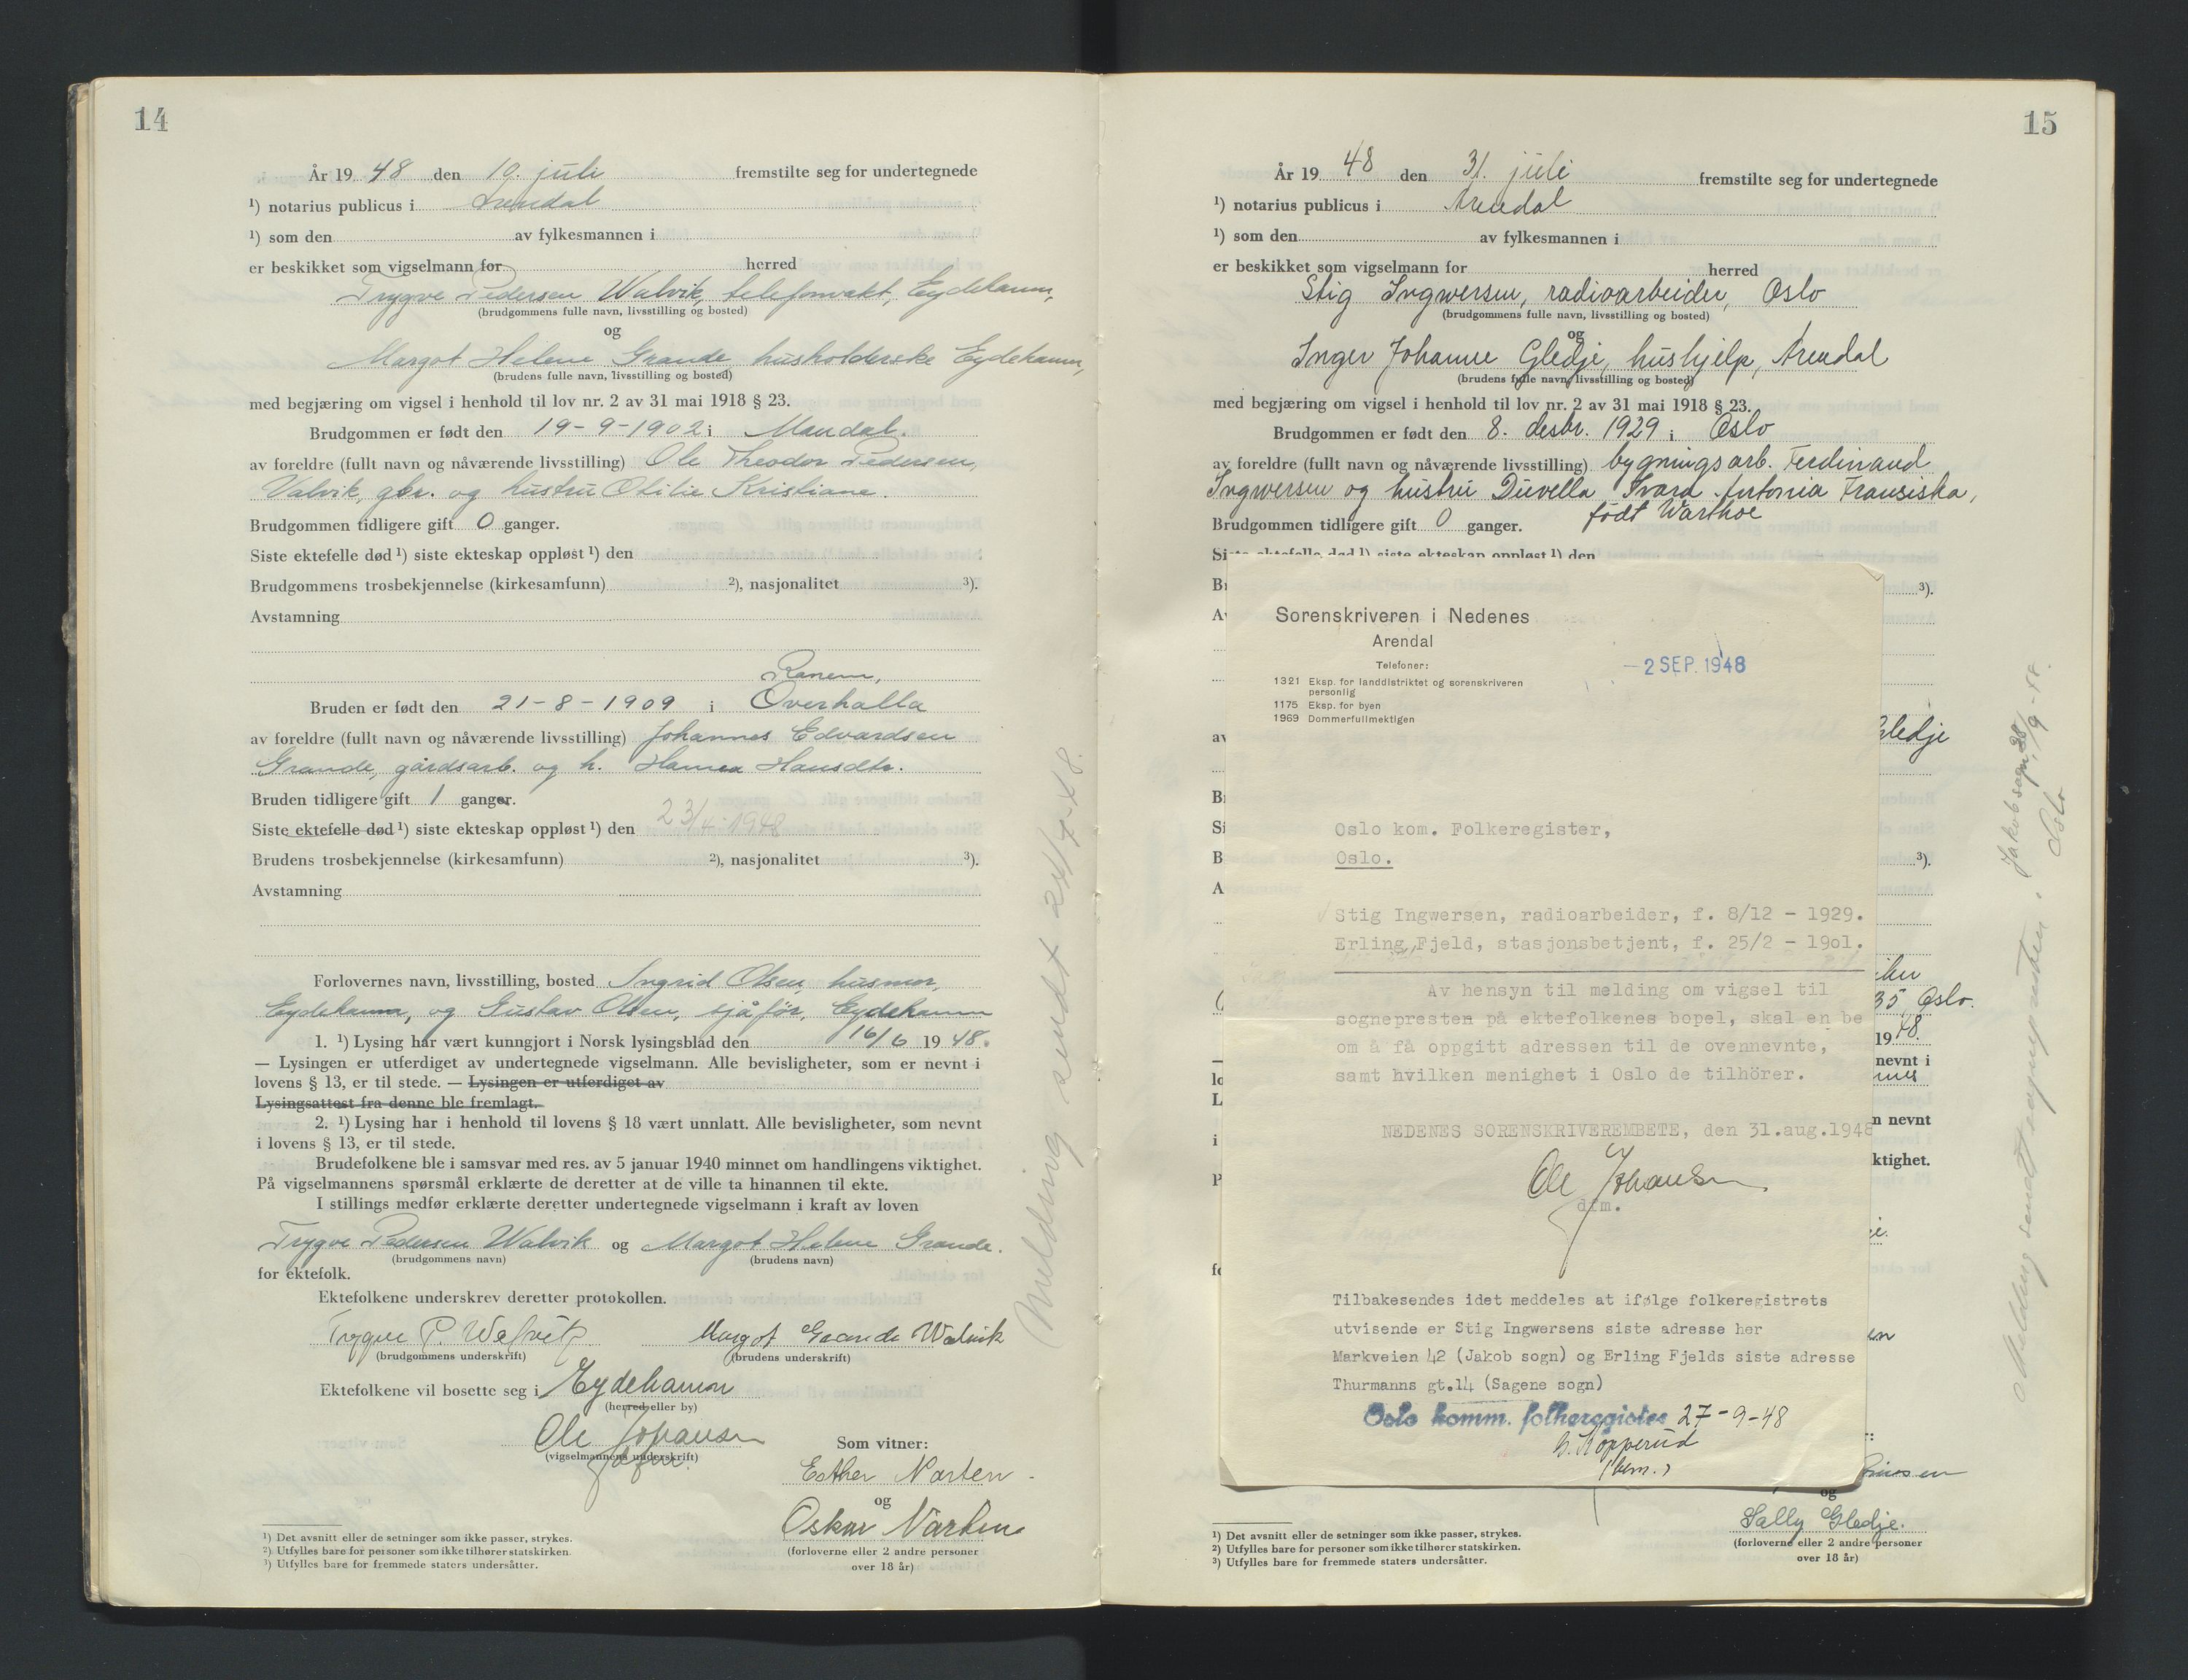 14
År 19 48 den 19. juli fremstilte seg for undertegnede
¹) notarius publicus i Arendal
¹) som den av fylkesmannen i
er beskikket som vigselmann for herred
Trygve Pedersen Walvik, telefonvakt, Eydehavn,
(brudgommens fulle navn, livsstilling og bosted)
og
Margot Helene Grande, husholderske Eydehavn,
(brudens fulle navn, livsstilling og bosted)
med begjæring om vigsel i henhold til lov nr. 2 av 31 mai 1918 § 23.
Brudgommen er født den 19-9-1902 i Mandal.
av foreldre (fullt navn og nåværende livsstilling) Ole Theodor Pedersen,
Valvik, gbr. og hustru Otilie Kristiane.
Brudgommen tidligere gift 0 ganger.
Siste ektefelle død ¹) siste ekteskap oppløst ¹) den
Brudgommens trosbekjennelse (kirkesamfunn) ²), nasjonalitet ³).
Avstamning
Ranem,
Bruden er født den 21-8-1909 i Overhalla
av foreldre (fullt navn og nåværende livsstilling) Johannes Edvardsen
Grande, gårdsarb. og h. Hansdtr.
Bruden tidligere gift 1 ganger.
Siste ektefelle død ¹) siste ekteskap oppløst ¹) den 23/4-1948
Brudens trosbekjennelse (kirkesamfunn) ²), nasjonalitet ³).
Avstamning
Forlovernes navn, livsstilling, bosted Ingrid Olsen, husmor,
Eydehavn, og Gustav Olsen, sjåfør, Eydehavn
1. ¹) Lysing har vært kunngjort i Norsk lysingsblad den 16/6 19 48.
— Lysingen er utferdiget av undertegnede vigselmann. Alle bevisligheter, som er nevnt i
lovens § 13, er til stede. — Lysingen er utferdiget av
Lysingsattest fra denne ble fremlagt.
2. ¹) Lysing har i henhold til lovens § 18 vært unnlatt. Alle bevisligheter, som nevnt
i lovens § 13, er til stede.
Brudefolkene ble i samsvar med res. av 5 januar 1940 minnet om handlingens viktighet.
På vigselmannens spørsmål erklærte de deretter at de ville ta hinannen til ekte.
I stillings medfør erklærte deretter undertegnede vigselmann i kraft av loven
Trygve Pedersen Walvik og Margot Helene Grande.
(brudgommens navn) (brudens navn)
for ektefolk.
Ektefolkene underskrev deretter protokollen.
Trygve P. Walvik Margot Grande Walvik
(brudgommens underskrift) (brudens underskrift)
Ektefolkene vil bosette seg i Eydehavn
(herred eller by)
Ole Johansen
(vigselmannens underskrift)
dfm.
Som vitner:
Esther Narten
og
Oskar Narten
(forloverne eller 2 andre personer
over 18 år)
¹) Det avsnitt eller de setninger som ikke passer, strykes.
²) Utfylles bare for personer som ikke tilhører statskirken.
³) Utfylles bare for fremmede staters undersåtter.
Melding sendt 24/7-48.
15
År 19 48 den 31. juli fremstilte seg for undertegnede
¹) notarius publicus i Arendal
¹) som den av fylkesmannen i
er beskikket som vigselmann for herred
Stig Ingwersen, radioarbeider, Oslo
(brudgommens fulle navn, livsstilling og bosted)
og
Inger Johanne Gledje, hushjelp, Arendal
(brudens fulle navn, livsstilling og bosted)
med begjæring om vigsel i henhold til lov nr. 2 av 31 mai 1918 § 23.
Brudgommen er født den 8. desbr. 1929 i Oslo
av foreldre (fullt navn og nåværende livsstilling) bygningsarb. Ferdinand
Ingwersen og hustru Duvella Antonia Fransiska,
født Warthoe
Brudgommen tidligere gift 0 ganger.
Siste ektefelle død ¹) siste ekteskap oppløst ¹) den
³).
Sorenskriveren i Nedenes
Arendal
Telefoner:
1321 Eksp. for landdistriktet og sorenskriveren
personlig
1175 Eksp. for byen
1969 Dommerfullmektigen
- 2 SEP. 1948
Oslo kom. Folkeregister,
Oslo.
Stig Ingwersen, radioarbeider, f. 8/12 - 1929.
Erling Fjeld, stasjonsbetjent, f. 25/2 - 19o1.
Av hensyn til melding om vigsel til
sognepresten på ektefolkenes bopel, skal en be
om å få oppgitt adressen til de ovennevnte,
samt hvilken menighet i Oslo de tilhörer.
NEDENES SORENSKRIVEREMBETE, den 31.aug.1948
Ole Johansen
dfm.
Tilbakesendes idet meddeles at ifølge folkeregistrets
utvisende er Stig Ingwersens siste adresse her
Markveien 42 (Jakob sogn) og Erling Fjelds siste adresse
Thurmanns gt.14 (Sagene sogn)
Oslo komm. folkeregister 27-9-48
Kopperud
Gledje
³).
35 Oslo.
19 48.
nevnt i
nevnt
ktighet.
og
Sally Gledje.
(forloverne eller 2 andre personer
over 18 år)
¹) Det avsnitt eller de setninger som ikke passer, strykes.
²) Utfylles bare for personer som ikke tilhører statskirken.
³) Utfylles bare for fremmede staters undersåtter.
Melding sendt sognepresten i Jakob sogn, 28/9-48.
Oslo